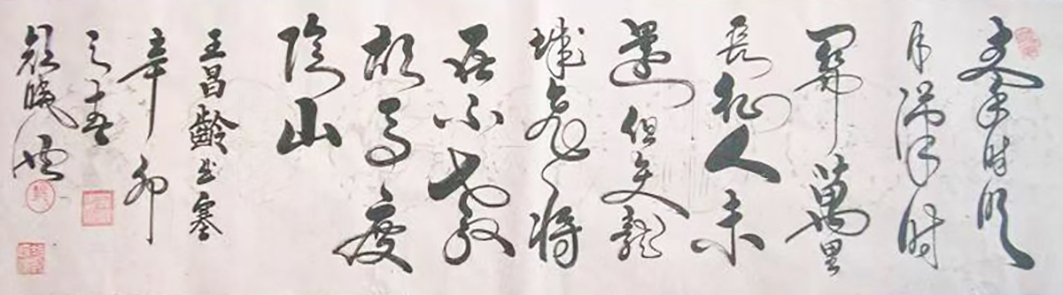 秦時明
月漢時
關萬里
長征人未
還但使龍
城飛將
在不教
胡馬度
陰山
王昌齡出塞
辛卯